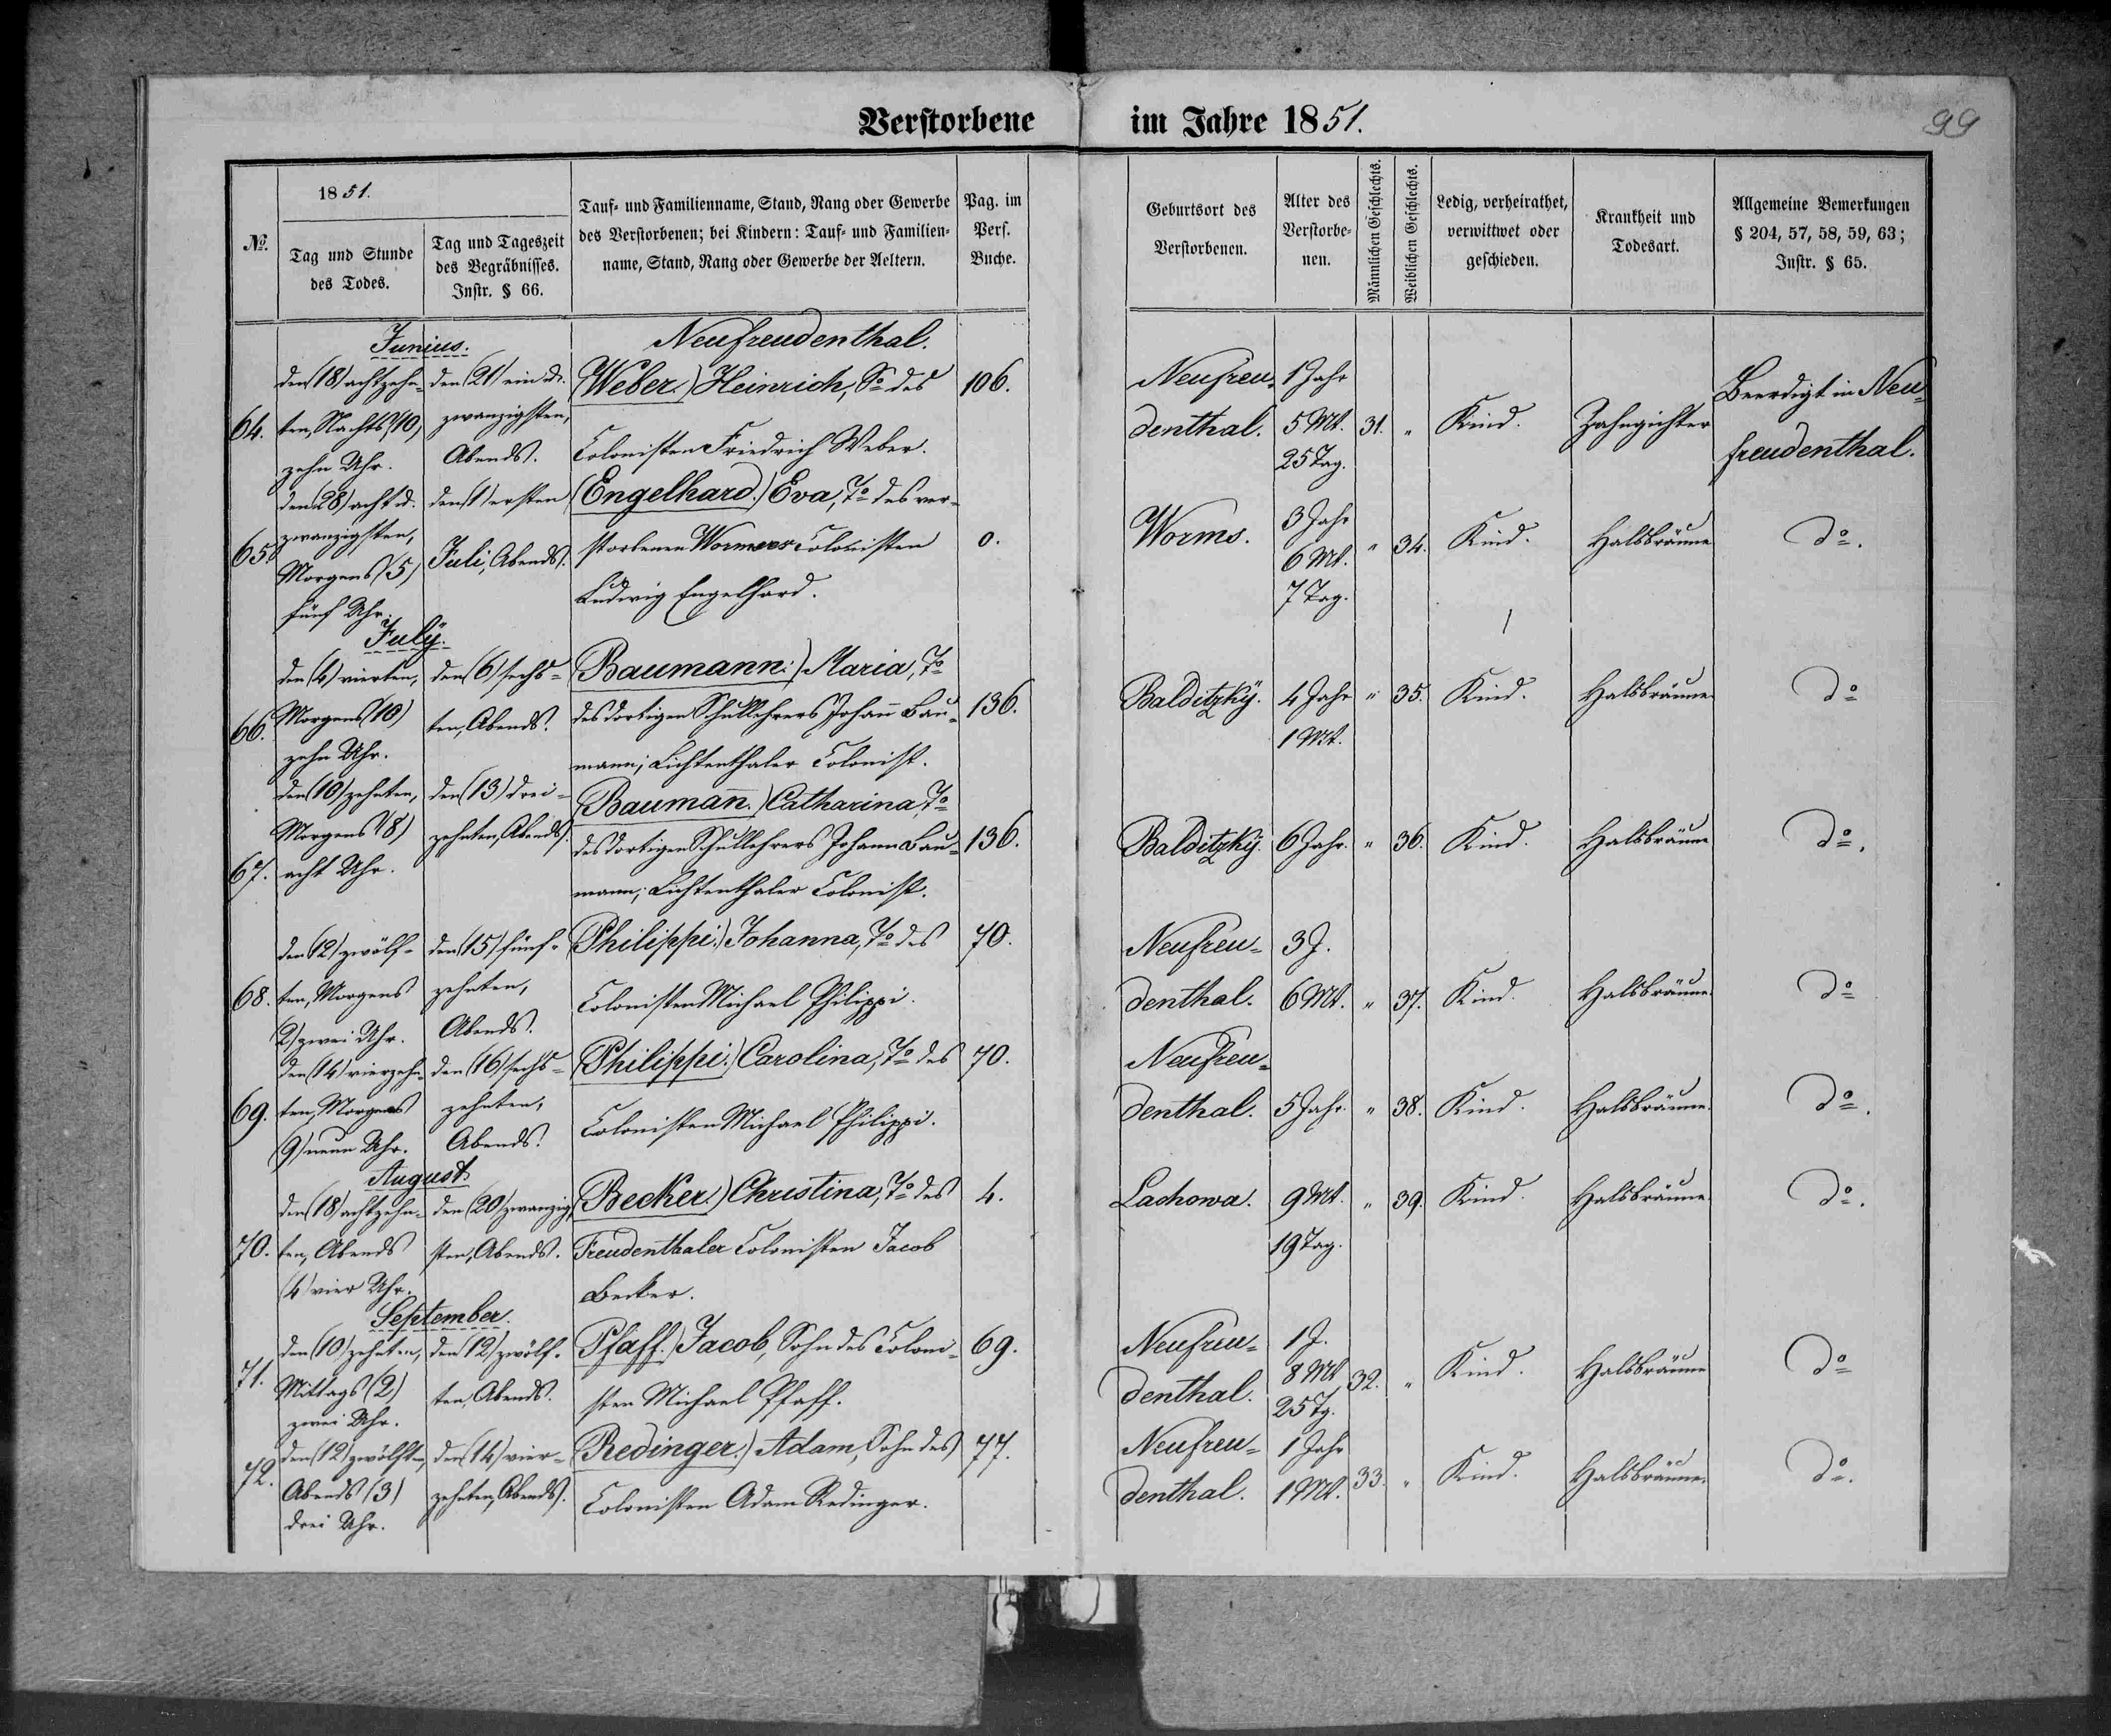 Verstorbene im Jahre 1851.
99
No.
1851.
Tag und Stunde
des Todes.
Tag und Tageszeit
des Begräbnisses.
Instr. § 66.
Tauf- und Familienname, Stand, Rang oder Gewerbe
des Verstorbenen; bei Kindern: Tauf- und Familien-
name, Stand, Rang oder Gewerbe der Aeltern.
Pag. im
Pers.
Buche.
Geburtsort des
Verstorbenen.
Alter des
Verstorbe-
nen.
Männlichen Geschlechts.
Weiblichen Geschlechts.
Ledig, verheirathet,
verwittwet oder
geschieden.
Krankheit und
Todesart.
Allgemeine Bemerkungen
§ 204, 57, 58, 59, 63;
Instr. § 65.
Junius.
Neufreudenthal.
64.
den (18) achtzehn-
ten, Nachts (10)
zehn Uhr.
den (21) ein u.
zwanzigsten,
Abends.
Weber.) Heinrich, So. des
Colonisten Friedrich Weber.
106.
Neufreu-
denthal.
1 Jahr
5 Mt.
25 Tag.
31.
"
Kind.
Zahngichter
Beerdigt in Neu-
freudenthal.
65.
den (28) acht u.
zwanzigsten,
Morgens (5)
fünf Uhr.
den (1) ersten
Juli, Abends.
(Engelhard.) Eva, To. des ver-
storbenen Wormser Colonisten
Ludwig Engelhard.
0.
Worms.
3 Jahr
6 Mt.
7 Tag.
"
34.
Kind.
Halsbräune
do.
July.
66.
den (4) vierten,
Morgens (10)
zehn Uhr.
den (6) sechs-
ten, Abends.
Baumann.) Maria, To.
des dortigen Schullehrers Johañ Bau-
mann; Lichtenthaler Colonist.
136.
Balditzkÿ.
4 Jahr
1 Mt.
"
35.
Kind.
Halsbräune
do
67.
den (10) zehnten,
Morgens (8)
acht Uhr.
den (13) drei-
zehnten, Abends.
Baumañ.) Catharina, To.
des dortigen Schullehrers Johann Bau-
mann; Lichtenthaler Colonist.
136.
Balditzkÿ.
6 Jahr.
"
36.
Kind.
Halsbräune
do.
68.
den (12) zwölf-
ten, Morgens
(2) zwei Uhr.
den (15) fünf-
zehnten,
Abends.
Philippi.) Johanna, To. des
Colonisten Michael Philippi.
70.
Neufreu-
denthal.
3 J.
6 Mt.
"
37.
Kind.
Halsbräune.
do
69.
den (14) vierzehn-
ten, Morgens
(9) neun Uhr.
den (16) sechs-
zehnten,
Abends.
Philippi.) Carolina, To. des
Colonisten Michael Philippi.
70.
Neufreu-
denthal.
5 Jahr.
"
38.
Kind.
Halsbräune.
do.
August.
70.
den (18) achtzehn-
ten, Abends
(4) vier Uhr.
den (20) zwanzig-
sten, Abends.
Becker.) Christina, To. des
Freudenthaler Colonisten Jacob
Becker.
4.
Lachowa.
9 Mt.
19 Tag.
"
39.
Kind.
Halsbräune.
do.
September.
71.
den (10) zehnten,
Mittags (2)
zwei Uhr.
den (12) zwölf-
ten, Abends.
Pfaff.) Jacob, Sohn des Coloni-
sten Michael Pfaff.
69.
Neufreu-
denthal.
1 J.
8 Mt
25 Tg.
32.
"
Kind.
Halsbräune
do
72.
den (12) zwölften,
Abends (3)
drei Uhr.
den (14) vier-
zehnten, Abends.
Redinger.) Adam, Sohn des
Colonisten Adam Redinger.
77.
Neufreu-
denthal.
1 Jahr
1 Mt.
33.
"
Kind.
Halsbräune.
do.